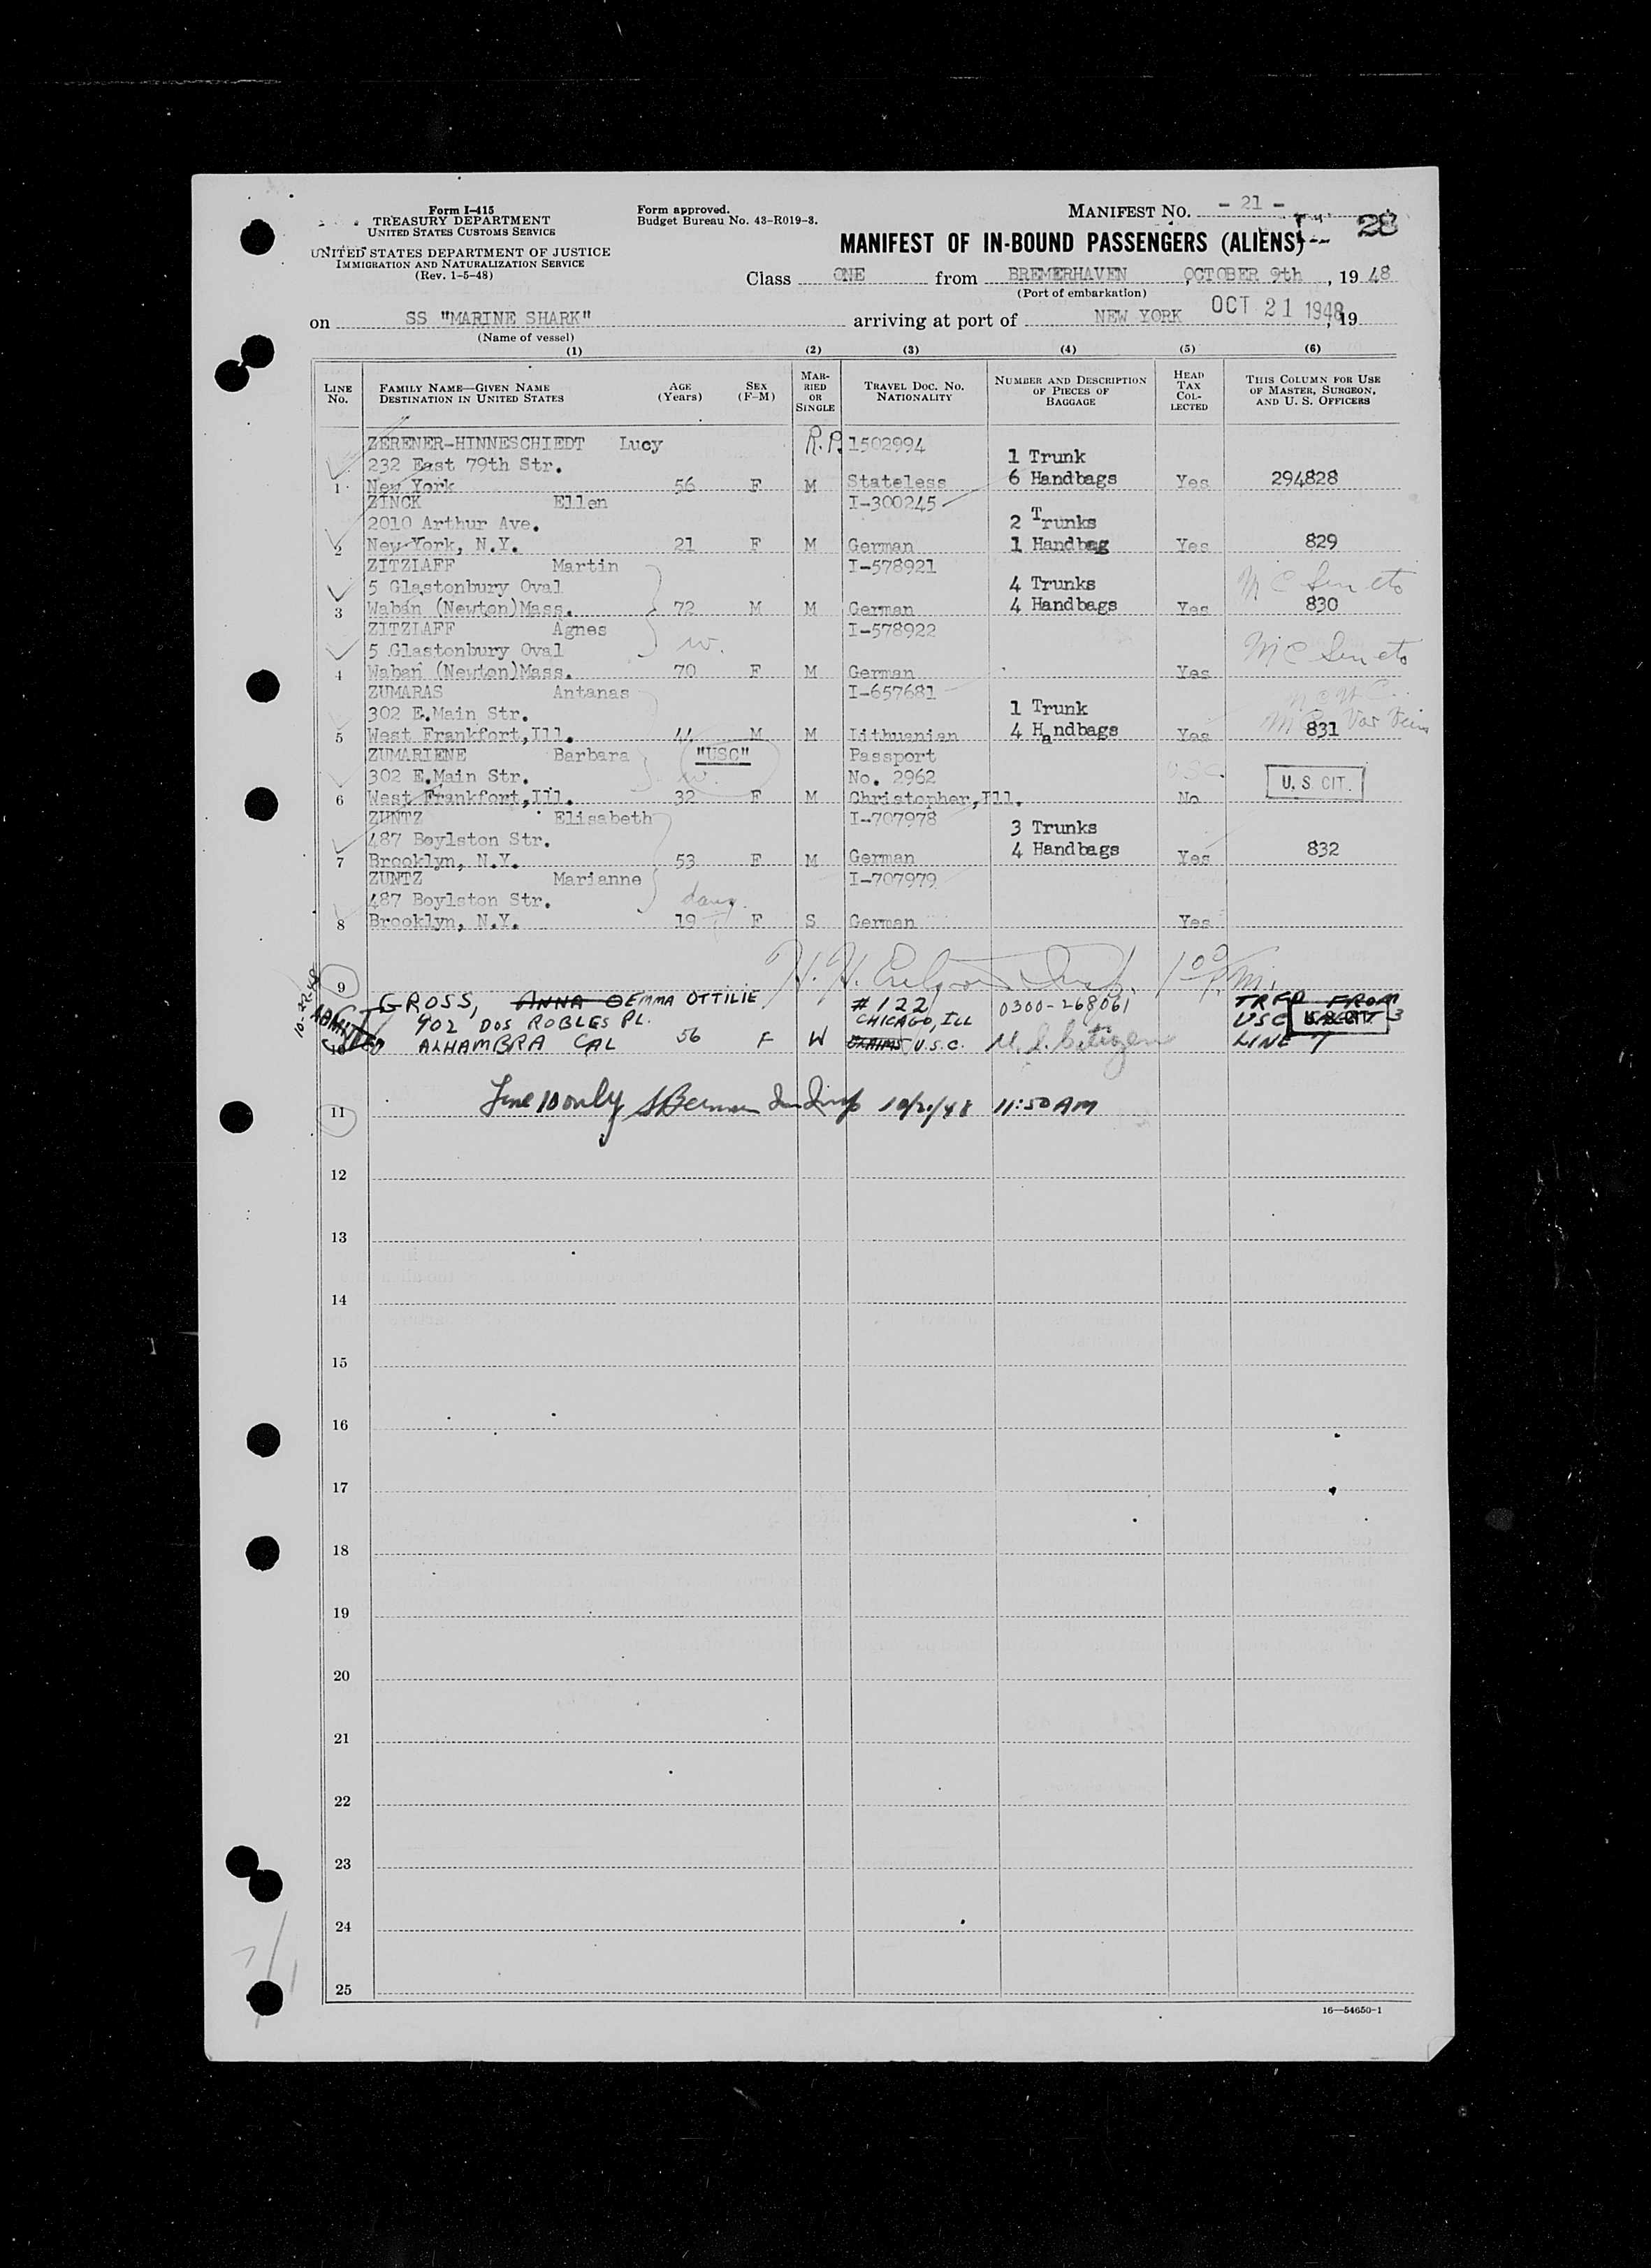 Form I-415
TREASURY DEPARTMENT
UNITED STATES CUSTOMS SERVICE
UNITED STATES DEPARTMENT OF JUSTICE
IMMIGRATION AND NATURALIZATION SERVICE
(Rev. 1-5-48)
Form approved.
Budget Bureau No. 43-R019-3.
MANIFEST NO. - 21 -
28
MANIFEST OF IN-BOUND PASSENGERS (ALIENS)
Class ONE from BREMERHAVEN, OCTOBER 9th, 19 48
(Port of embarkation)
on SS "MARINE SHARK" arriving at port of NEW YORK OCT 21 1948, 19
(Name of vessel)
(1) (2) (3) (4) (5) (6)
LINE NO. FAMILY NAME—GIVEN NAME DESTINATION IN UNITED STATES AGE (YEARS) SEX (F-M) MARRIED OR SINGLE TRAVEL DOC. NO. NATIONALITY NUMBER AND DESCRIPTION OF PIECES OF BAGGAGE HEAD TAX COLLECTED THIS COLUMN FOR USE OF MASTER, SURGEON, AND U. S. OFFICERS
ZERENER-HINNESCHIEDT Lucy R.P. 1502994
232 East 79th Str. 1 Trunk
1 New York 56 F M Stateless 6 Handbags Yes 294828
ZINCK Ellen I-300245
2010 Arthur Ave. 2 Trunks
2 New York, N.Y. 21 F M German 1 Handbag Yes 829
ZITZLAFF Martin I-578921
5 Glastonbury Oval 4 Trunks
3 Waban (Newton)Mass. 72 M M German 4 Handbags Yes 830
ZITZLAFF Agnes I-578922
5 Glastonbury Oval w.
4 Waban (Newton)Mass. 70 F M German Yes
ZUMARAS Antanas I-657681
302 E.Main Str. 1 Trunk
5 West Frankfort,Ill. 44 M M Lithuanian 4 Handbags Yes 831
ZUMARIENE Barbara "USC" Passport
302 E.Main Str. w. No. 2962 USC U.S. CIT.
6 West Frankfort,Ill. 32 F M Christopher,Ill. No
ZUNTZ Elisabeth I-707978
487 Boylston Str. 3 Trunks
7 Brooklyn, N.Y. 53 F M German 4 Handbags Yes 832
ZUNTZ Marianne I-707979
487 Boylston Str. daug.
8 Brooklyn, N.Y. 19 F S German Yes
9
GROSS, ANNA O EMMA OTTILIE #122 0300-268061 TRFD FROM
902 DOS ROBLES PL. CHICAGO, ILL USC
10 ALHAMBRA CAL 56 F W CLAIMS U.S.C. U.S. Citizen LINE 7
ADMITTED
10-22-48
11 Line 10 only 10/21/48 11:50 AM
12
13
14
15
16
17
18
19
20
21
22
23
24
25
16—54650-1